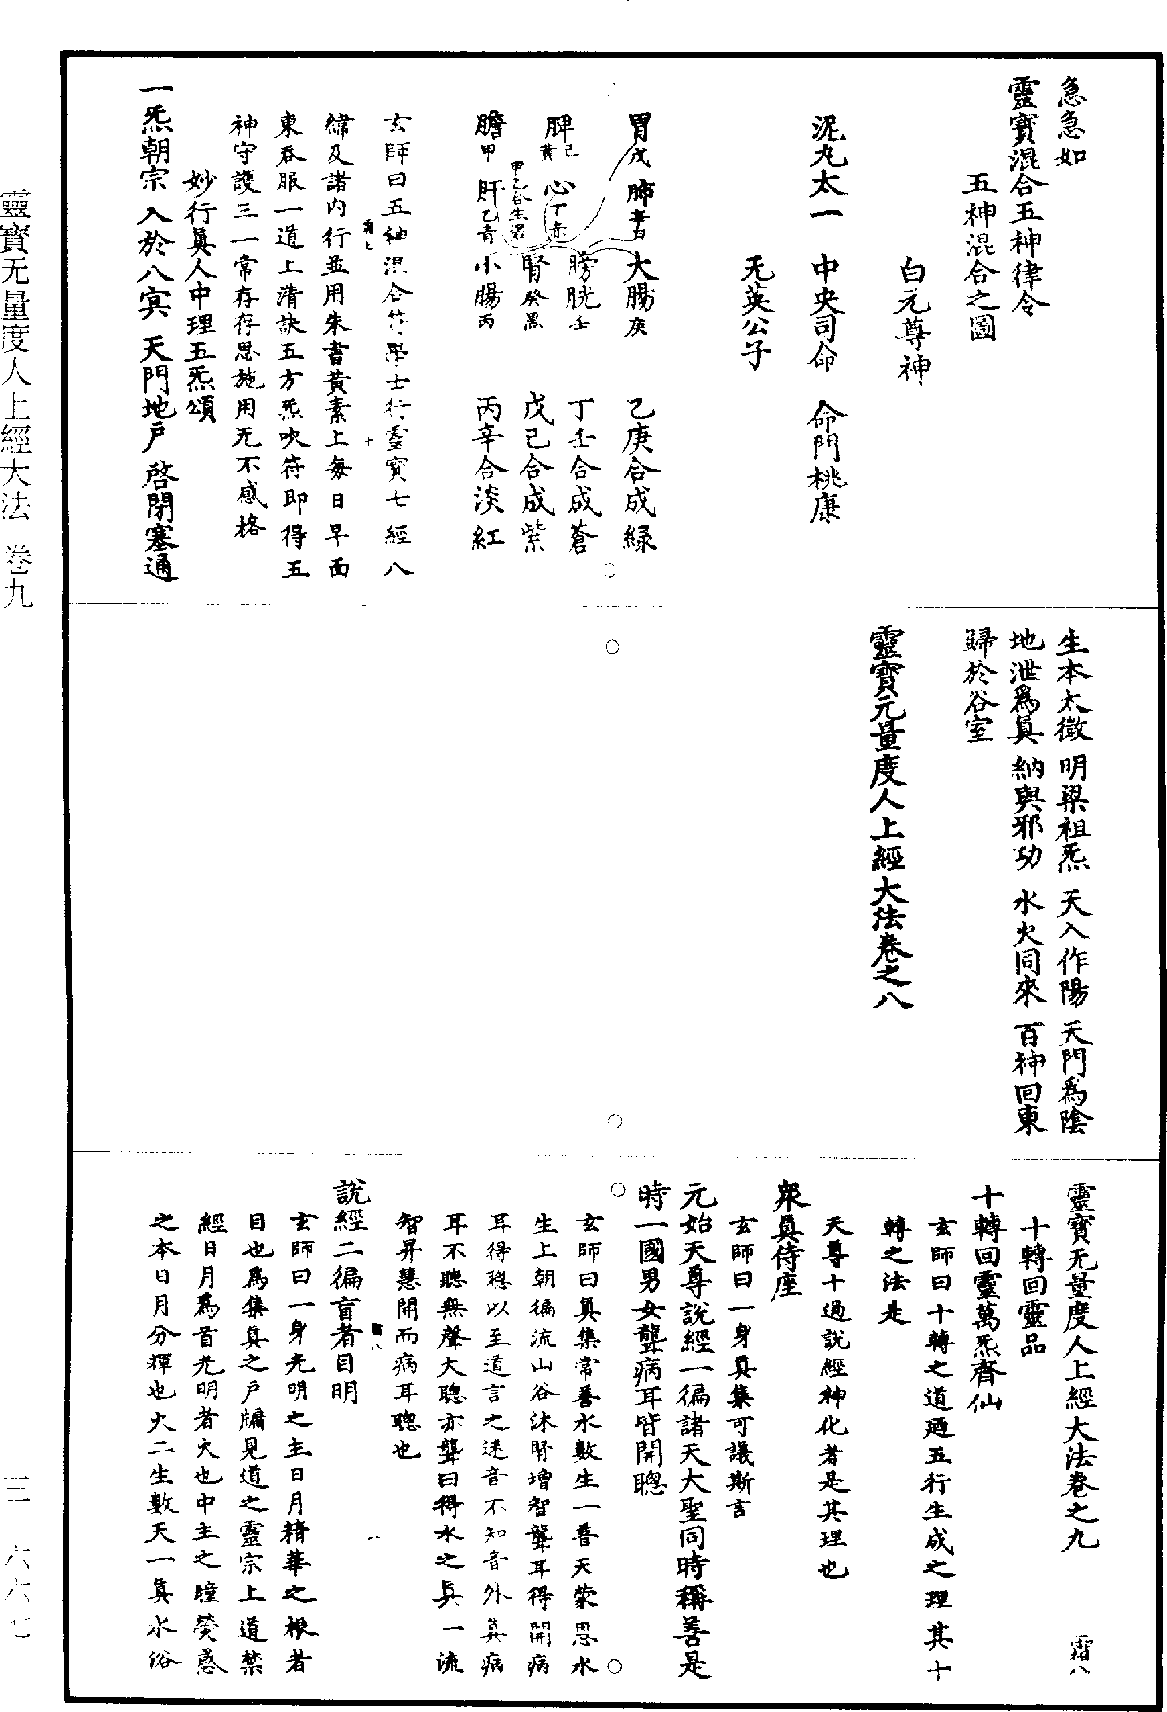 急急如
靈寶混合五神律令
五神混合之圖
白元尊神
泥丸太一　中央司命　命門桃康
无英公子
胃戊　肺辛白　大腸庚　乙庚合成綠
膀胱壬　丁壬合成蒼
脾己黃　心丁赤　腎癸黑　戊己合成紫
膽甲　肝乙青　小腸丙　丙辛合淡紅
玄師曰五神混合符學士行靈寶七經八
緯及諸內行並用朱書黃素上每日早面
東吞服一道上清訣五方炁吹符即得五
神守護三一常存存思施用无不感格
妙行眞人中理五炁頌
一炁朝宗　入於八冥　天門地戶　啓閉塞通
生本太微　明梁祖炁　天入作陽　天門爲陰
地泄爲眞　納與邪功　水火同來　百神回東
歸於谷室
靈寶元量度人上經大法卷之八
靈寶无量度人上經大法卷之九　霜八
十轉回靈品
十轉回靈萬炁齊仙
玄師曰十轉之道廼五行生成之理其十
轉之法是
天尊十過說經神化者是其理也
衆眞侍座
玄師曰一身眞集可議斯言
元始天尊說經一徧諸天大聖同時稱善是
時一國男女聾病耳皆開聰
玄師曰眞集常善水數生一普天蒙恩水
生上朝徧流山谷沐腎增智聾耳得開病
耳得聰以至道言之迷音不知音外眞病
耳不聰無聲大聰亦聾曰得水之眞一流
智昇慧開而病耳聰也
說經二徧盲者目明
玄師曰一身光明之主日月精華之根者
目也爲集眞之戶牖見道之靈宗上道禁
經日月爲首光明者火也中主之瞳熒惑
之本日月分擇也火二生數天一眞水俗
靈寶无量度人上經大法　卷九
三　六六七